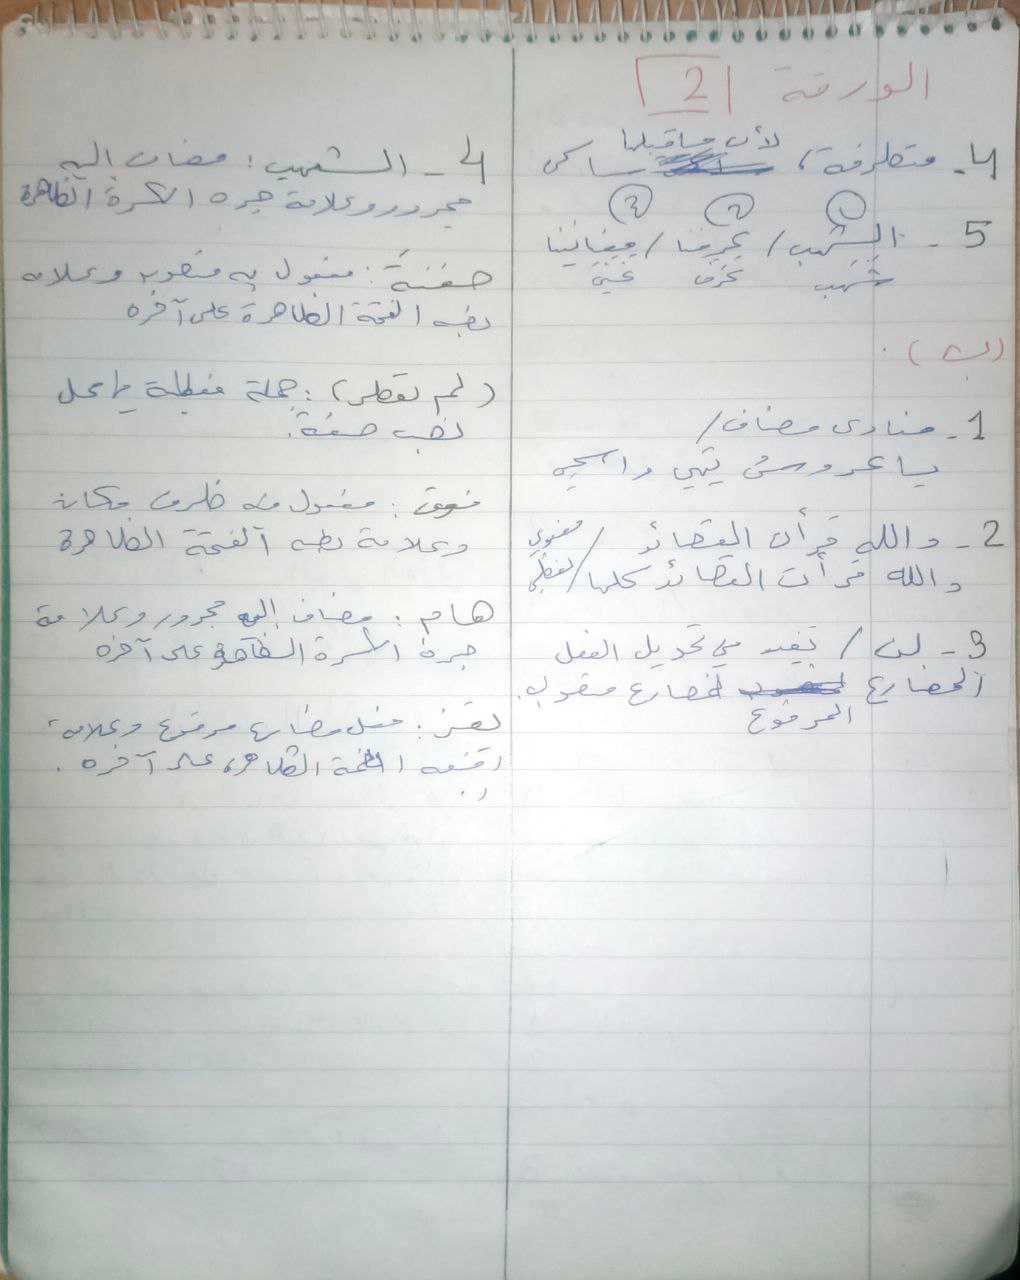 الورقة 2
4- متطرفة، لأن ما قبلها ساكن
① ② ③
5- الشهب / يجرفنا / مغانينا
شهب جرف غني
(ب).
1- منادى مضاف /
يا عروس تيهي واسحبي
2- والله قرأت القصائد / معنوي
والله قرأت القصائد كلها / لفظي
3- لن / تفيد في تحويل الفعل
المضارع المرفوع لمضارع منصوب.
4- الشهب: مضاف إليه
مجرور وعلامة جره الكسرة الظاهرة
حفنةً: مفعول به منصوب وعلامة
نصبه الفتحة الظاهرة على آخره
(لم تقطر): جملة فعلية في محل
نصب صفة.
فوق: مفعول فيه ظرف مكان
وعلامة نصبه الفتحة الظاهرة
هام: مضاف إليه مجرور وعلامة
جره الكسرة الظاهرة على آخره
فعل مضارع مرفوع وعلامة
رفعه الضمة الظاهرة على آخره.